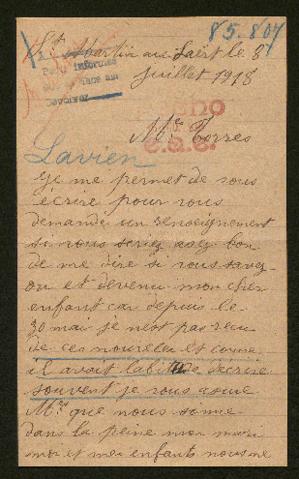 85.804
St Martin au Laërt le 8
juillet 1918
Mr Torres
Lavien
Je me permet de vous
ecrire pour vous
demande un renseignement
si vous seriez asez bon
de me dire si vous savez
ou et devenu mon cher
enfant car depuis le
30 mai je nest pas reçu
de ces nouvelles et come
il avait labitude decrire
souvent je vous asure
Mr que nous some
dans la peine mon mari
moi et mes enfants nous ne